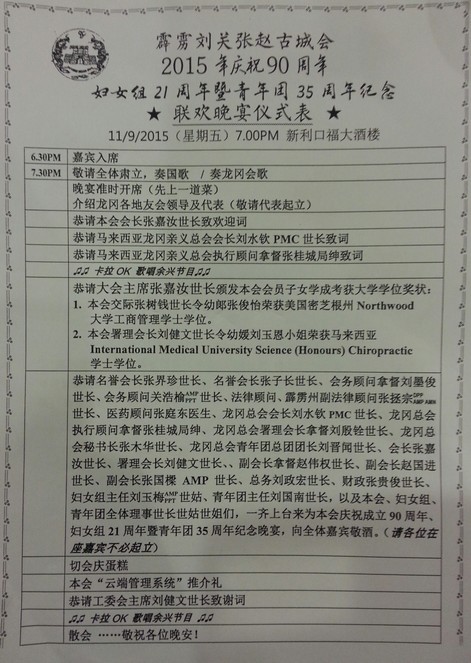 霹雳刘关张赵古城会
2015 年庆祝90 周年
妇女组 21 周年暨青年团 35 周年纪念
★ 联欢晚宴仪式表 ★
11/9/2015（星期五）7.00PM 新利口福大酒楼
6.30PM 嘉宾入席
7.30PM 敬请全体肃立，奏国歌 / 奏龙冈会歌
晚宴准时开席（先上一道菜）
介绍龙冈各地友会领导及代表（敬请代表起立）
恭请本会会长张嘉汝世长致欢迎词
恭请马来西亚龙冈亲义总会会长刘水钦 PMC 世长致词
恭请马来西亚龙冈亲义总会执行顾问拿督张桂城局绅致词
♫♫ 卡拉 OK 歌唱余兴节目♫♫
恭请大会主席张嘉汝世长颁发本会会员子女学成考获大学学位奖状:
1. 本会交际张树钱世长令幼郎张俊怡荣获美国密芝根州 Northwood
大学工商管理学士学位。
2. 本会署理会长刘健文世长令幼媛刘玉恩小姐荣获马来西亚
International Medical University Science (Honours) Chiropractic
学士学位。
恭请名誉会长张界珍世长、名誉会长张子长世长、会务顾问拿督刘墨俊
世长、会务顾问关浩榆世长、法律顾问、霹雳州副法律顾问张拯宗
世长、医药顾问张庭东医生、龙冈总会会长刘水钦 PMC 世长、龙冈总会
执行顾问拿督张桂城局绅、龙冈总会署理会长拿督刘殷铨世长、龙冈总
会秘书长张木华世长、龙冈总会青年团总团团长刘晋闻世长、会长张嘉
汝世长、署理会长刘健文世长、、副会长拿督赵伟权世长、副会长赵国进
世长、副会长张国樑 AMP 世长、总务刘政宏世长、财政张贵俊世长、
妇女组主任刘玉梅世姑、青年团主任刘国南世长，以及本会、妇女组、
青年团全体理事世长世姑世姐们，一齐上台来为本会庆祝成立 90 周年、
妇女组 21 周年暨青年团 35 周年纪念晚宴，向全体嘉宾敬酒。（请各位在
座嘉宾不必起立）
切会庆蛋糕
本会“云端管理系统”推介礼
恭请工委会主席刘健文世长致谢词
♫♫ 卡拉 OK 歌唱余兴节目 ♫♫
散会 ……敬祝各位晚安！